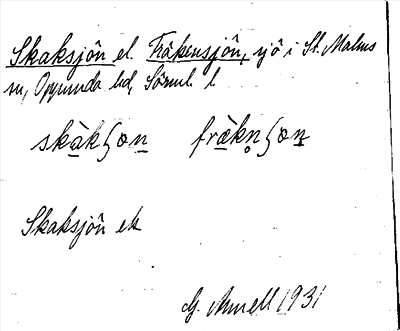 Skaksjön el. Fräkensjön, sjö i St. Malms
sn, Oppunda hd, Sörml. l
skàkʃon fràkn̥ʃon
Skaksjön ek
G. Annell 1931